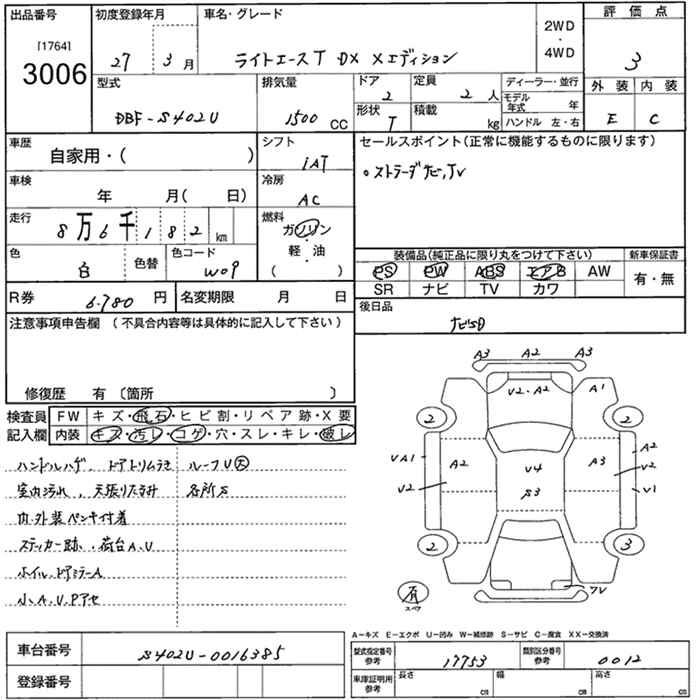 出品番号 初度登録年月 車名・グレード 評価点
[1764] 2WD
・
4WD
3006 27 3月 ライトエースT DX Xエディション 3
型式 排気量 ドア 2 定員 2人 ディーラー・並行 外装 内装
モデル年式 年
DBF-S402U 1500cc 形状 T 積載 kg ハンドル 左・右 E C
車歴 自家用・( ) シフト iAT セールスポイント(正常に機能するものに限ります)
車検 年 月( 日) 冷房 AC 。ストラーダナビ,TV
走行 8万6千182km 燃料 ガソリン
・
軽・油
( )
色 白 色替 色コード W09
装備品(純正品に限り丸をつけて下さい) 新車保証書
PS PW ABS エアB AW 有・無
SR ナビ TV カワ
R券 6.780円 名変期限 月 日
後日品
ナビSD
注意事項申告欄(不具合内容等は具体的に記入して下さい)
修復歴 有〔箇所 〕
検査員記入欄 FW キズ・飛石・ヒビ割・リペア跡・X要
内装 キズ・汚レ・コゲ・穴・スレ・キレ・破レ
ハンドルハゲ、ドアトリムうき ルーフU大
室内汚れ、天張りたるみ 各所S
内・外装ペンキ付着
ステッカー跡、荷台A、U
ホイル、ドアミラーA
小、A、U、Pアセ
A3 A2 A3
V2・A2 A1
2 2
VA1 A2 U4 A3 A2
V2
V2 S3 V1
2 3
有 スペア
TV
A-キズ E-エクボ U-凹み W-補修跡 S-サビ C-腐食 XX-交換済
車台番号 S402U-0016385
登録番号
型式指定番号参考 17753 類別区分番号参考 0012
車庫証明用参考 長さ cm 幅 cm 高さ cm